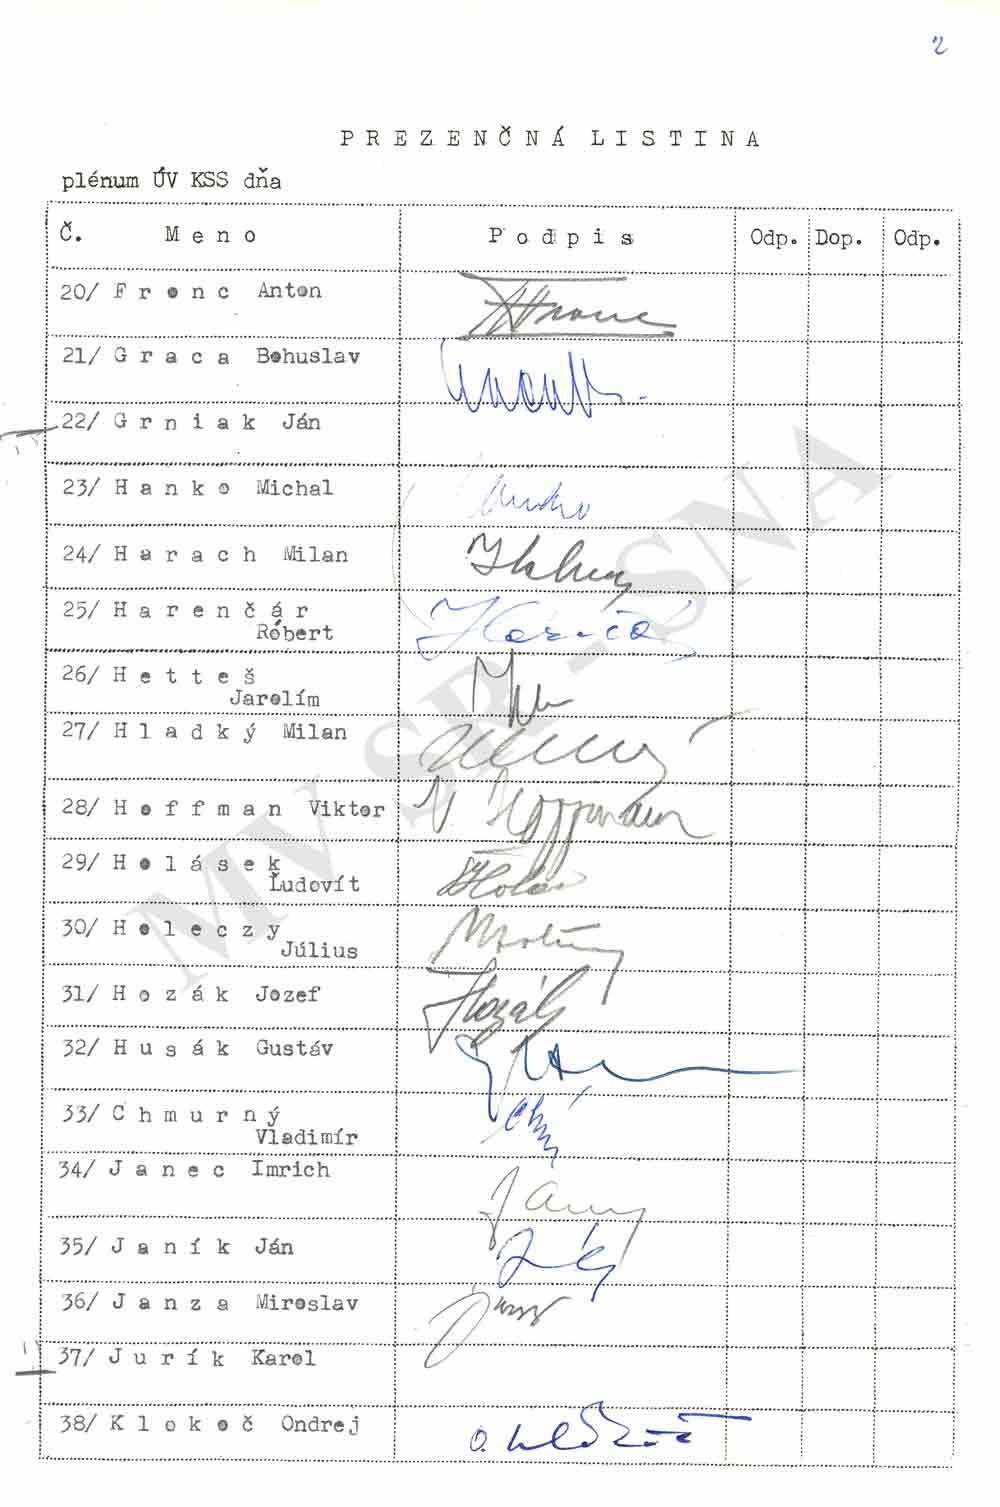 2
PREZENČNÁ LISTINA
plénum ÚV KSS dňa
Č. Meno Podpis Odp. Dop. Odp.
20/ Frenc Anton
21/ Graca Bohuslav
22/ Grniak Ján
23/ Hanko Michal
24/ Harach Milan
25/ Harenčár
Róbert
26/ Hetteš
Jarolím
27/ Hladký Milan
28/ Hoffman Viktor V. Hoffmann
29/ Holásek
Ľudovít
30/ Holeczy
Július
31/ Hozák Jozef Hozák
32/ Husák Gustáv
33/ Chmurný
Vladimír
34/ Janec Imrich
35/ Janík Ján
36/ Janza Miroslav
37/ Jurík Karol
38/ Klokoč Ondrej
MV SR - SNA